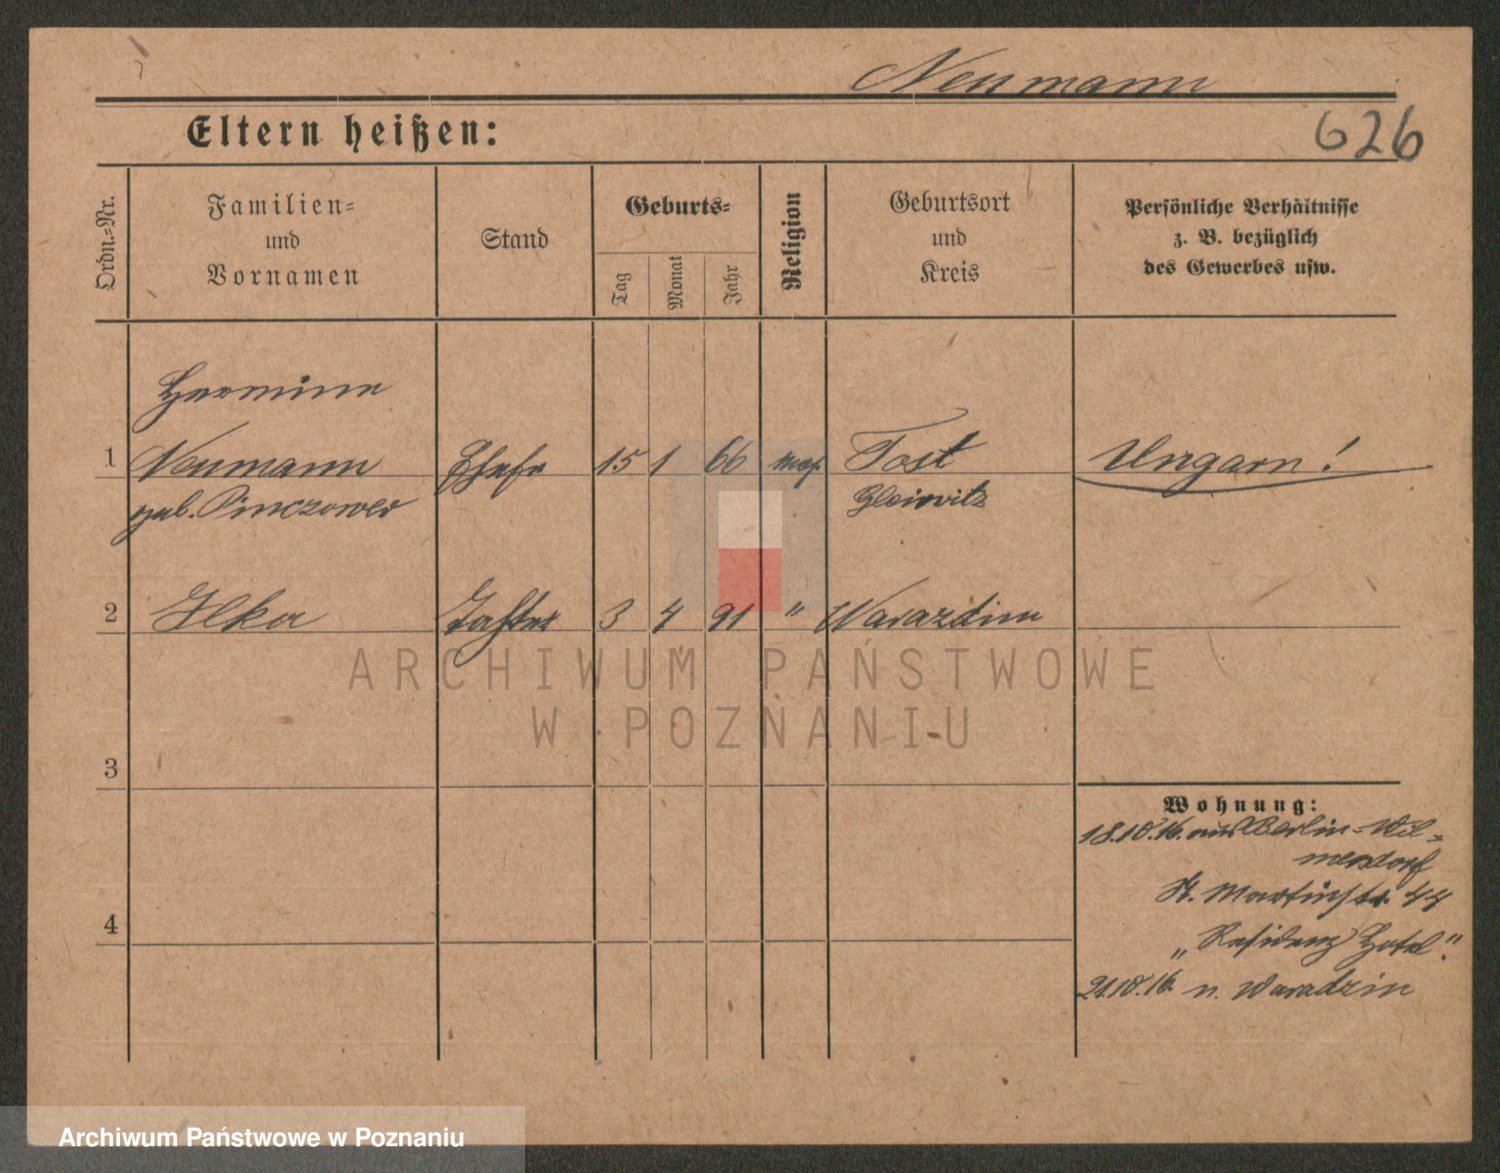 Neumann
Eltern heißen:
626
Ordn.=Nr.
Familien=
und
Vornamen
Stand
Geburts=
Tag
Monat
Jahr
Religion
Geburtsort
und
Kreis
Persönliche Verhältnisse
z. B. bezüglich
des Gewerbes usw.
Hermine
1 Neumann Ehefr 15 1 66 mos. Tost Ungarn!
geb. Pinczower Gleiwitz
2 Ilka Tochter 3 4 91 " Warazdim
ARCHIWUM PAŃSTWOWE
W POZNANIU
3
Wohnung:
18.10.16. aus Berlin=Wil=
mersdorf
St. Martinstr. 44
4
„Residenz Hotel".
21.10.16. n. Waradzin
Archiwum Państwowe w Poznaniu